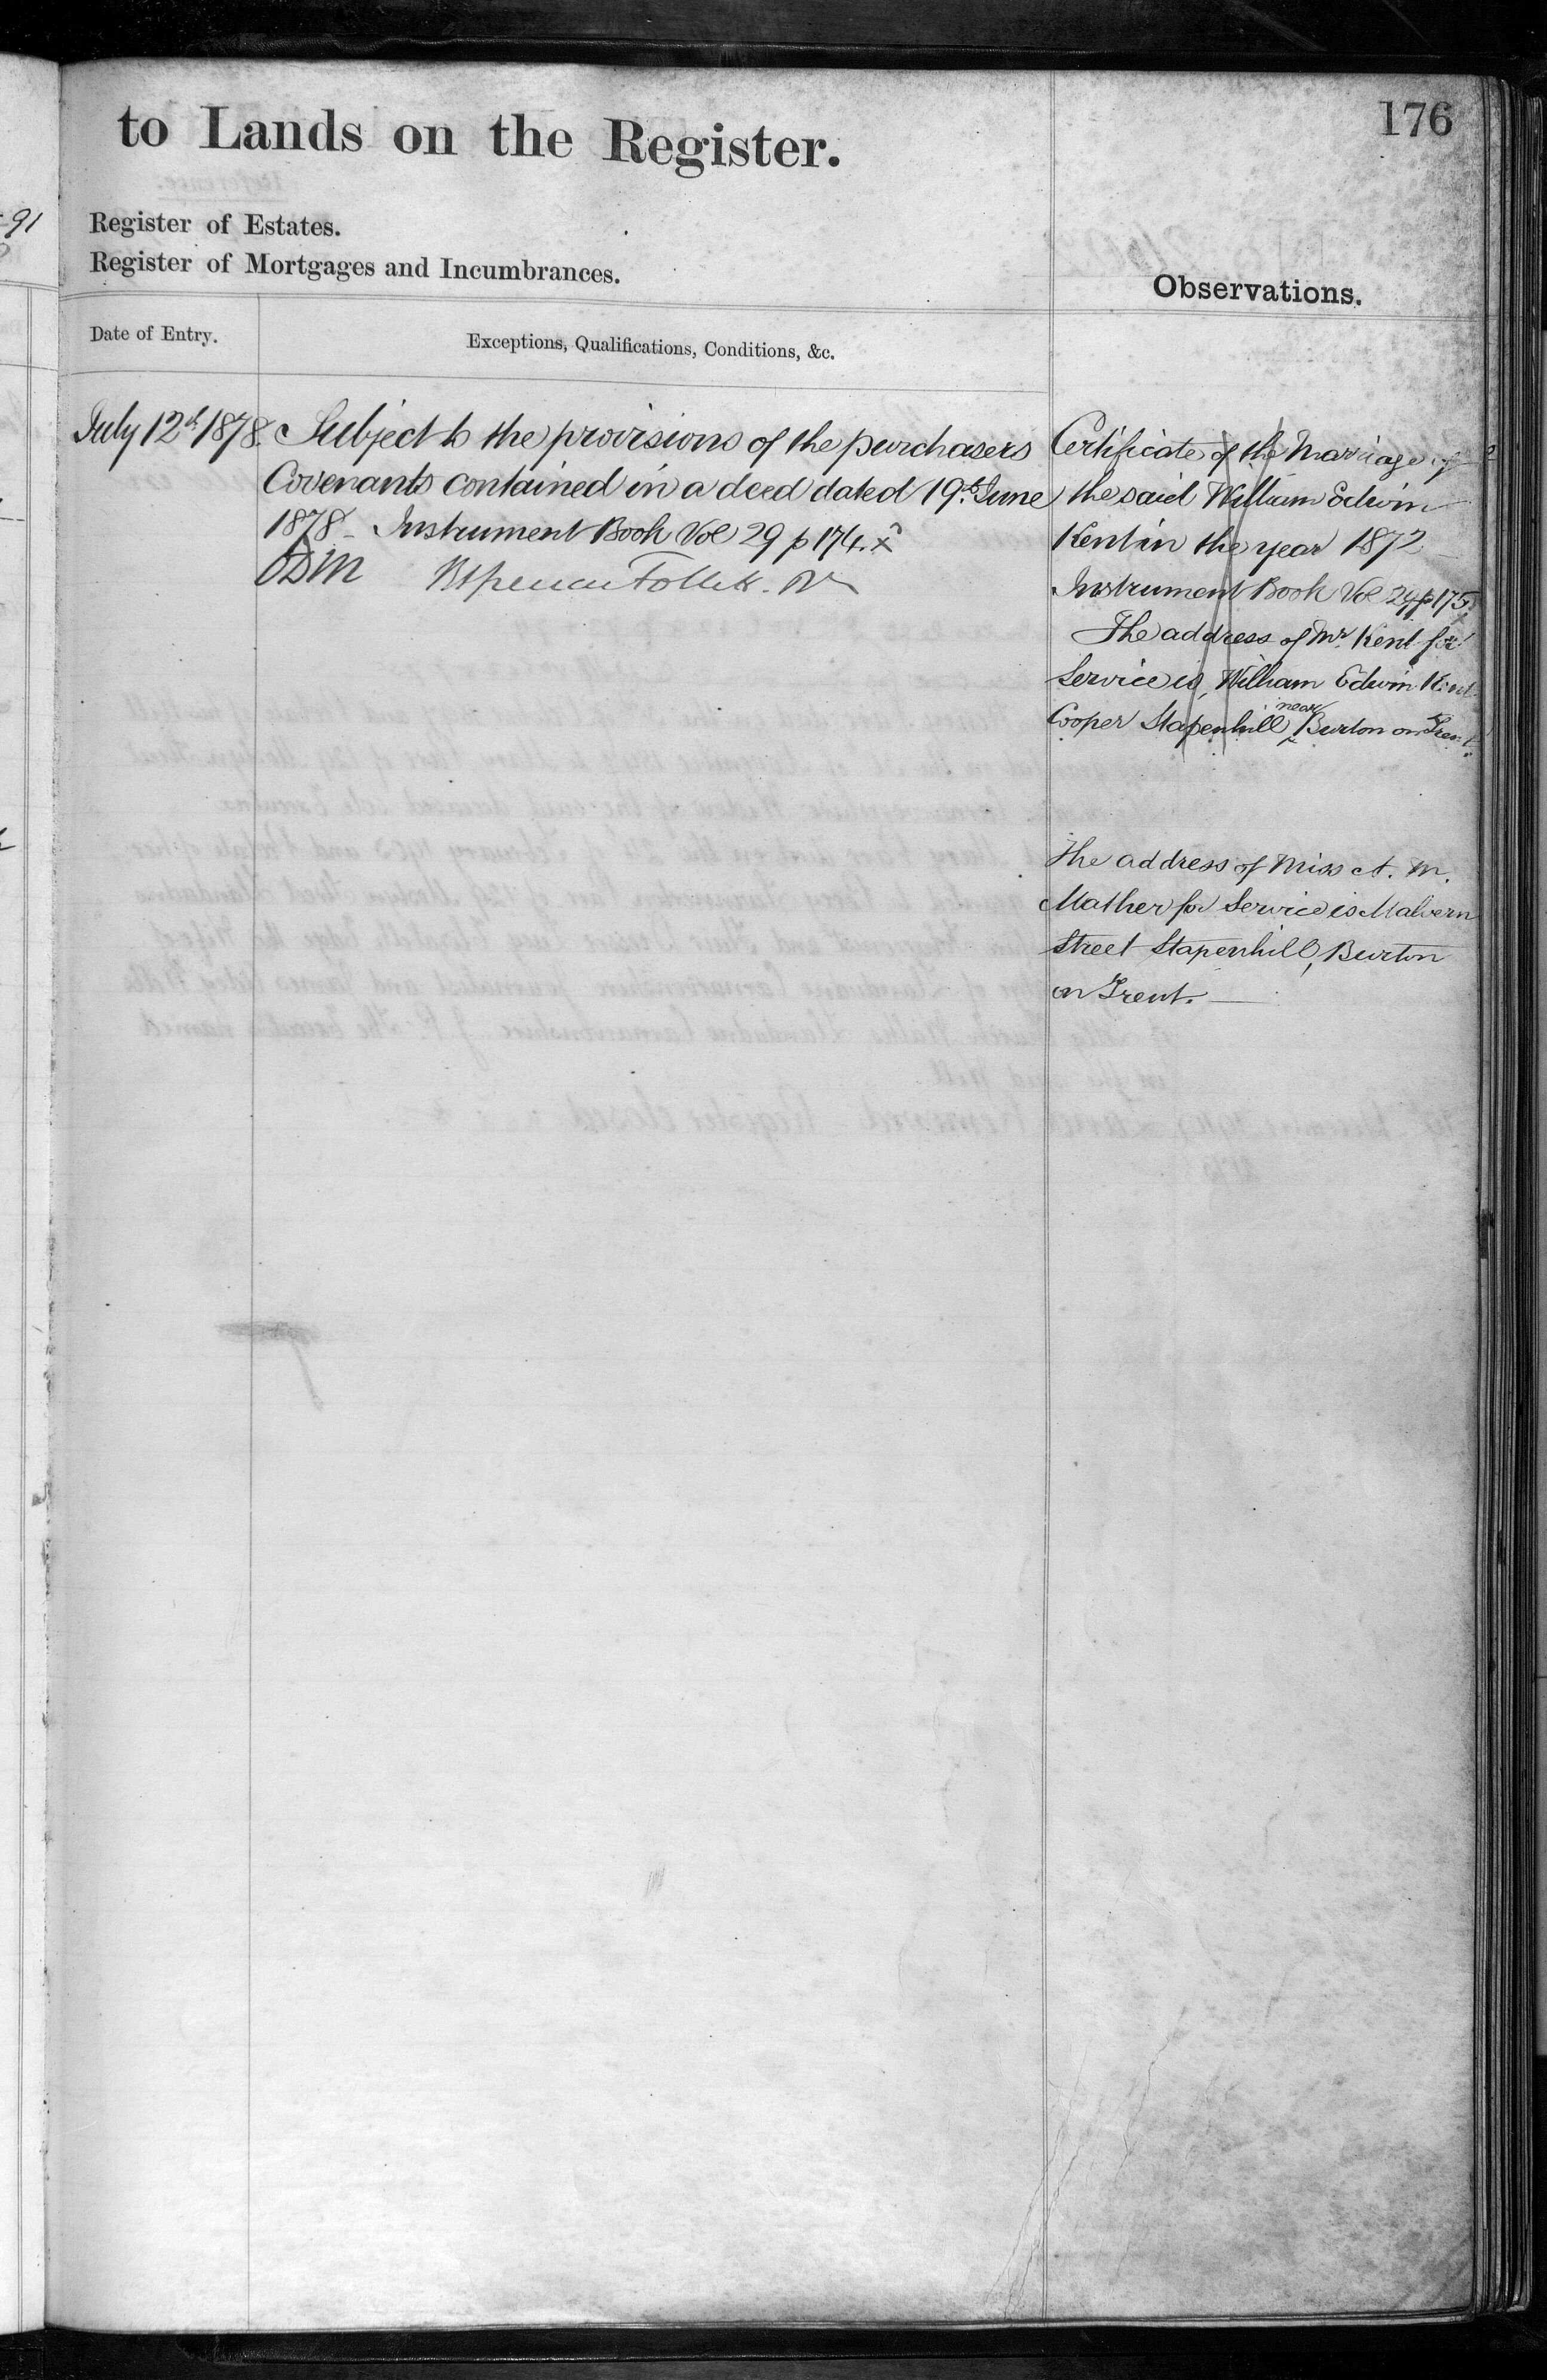 176
to Lands on the Register.
-91
Register of Estates.
Register of Mortgages and Incumbrances.
Observations.
Date of Entry.
Exceptions, Qualifications, Conditions, &c.
July 12th 1878. Subject to the provisions of the purchasers
Covenants contained in a deed dated 19th June
1878 - Instrument Book Vol 29 p 174. x
Certificate of the Marriage of
the said William Edwin
Kent in the year 1872
Instrument Book Vol 29 p 175
The address of Mr Kent for
Service is, William Edwin Kent
Cooper Stapenhill near Burton on Trent.
The address of Miss A. M.
Mather for Service is Malvern
Street Stapenhill, Burton
on Trent.